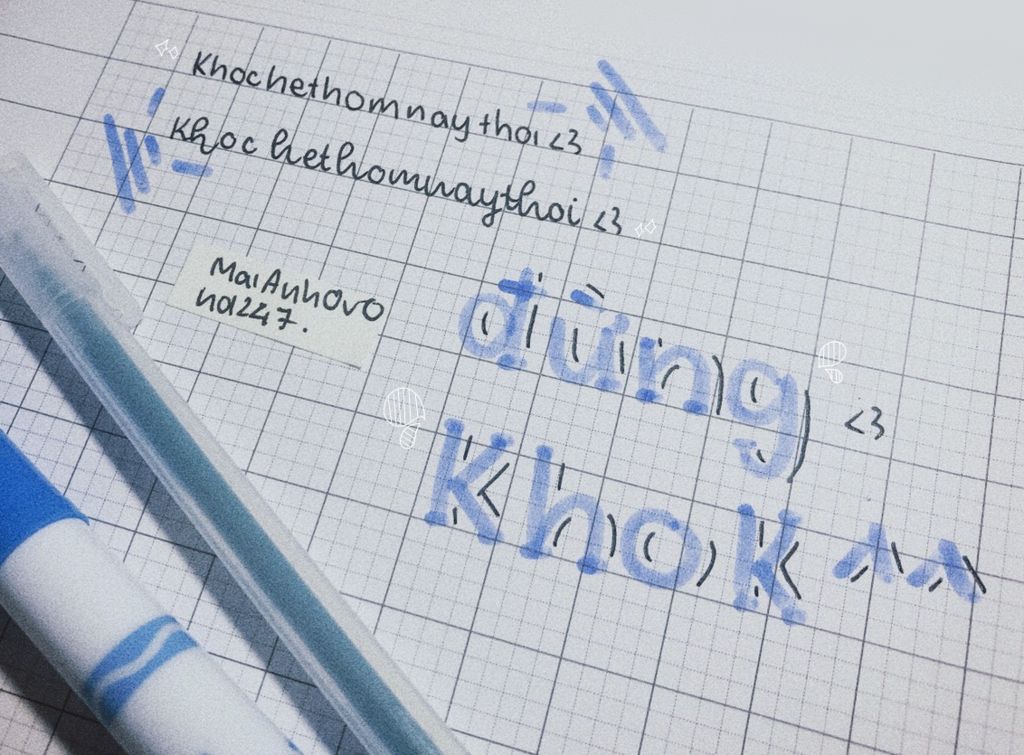 Khochethomnaythoi <3
Khoc hethomnaythoi <3
MaiAnhOvO
hd247.
đừng <3
KhoK ^^